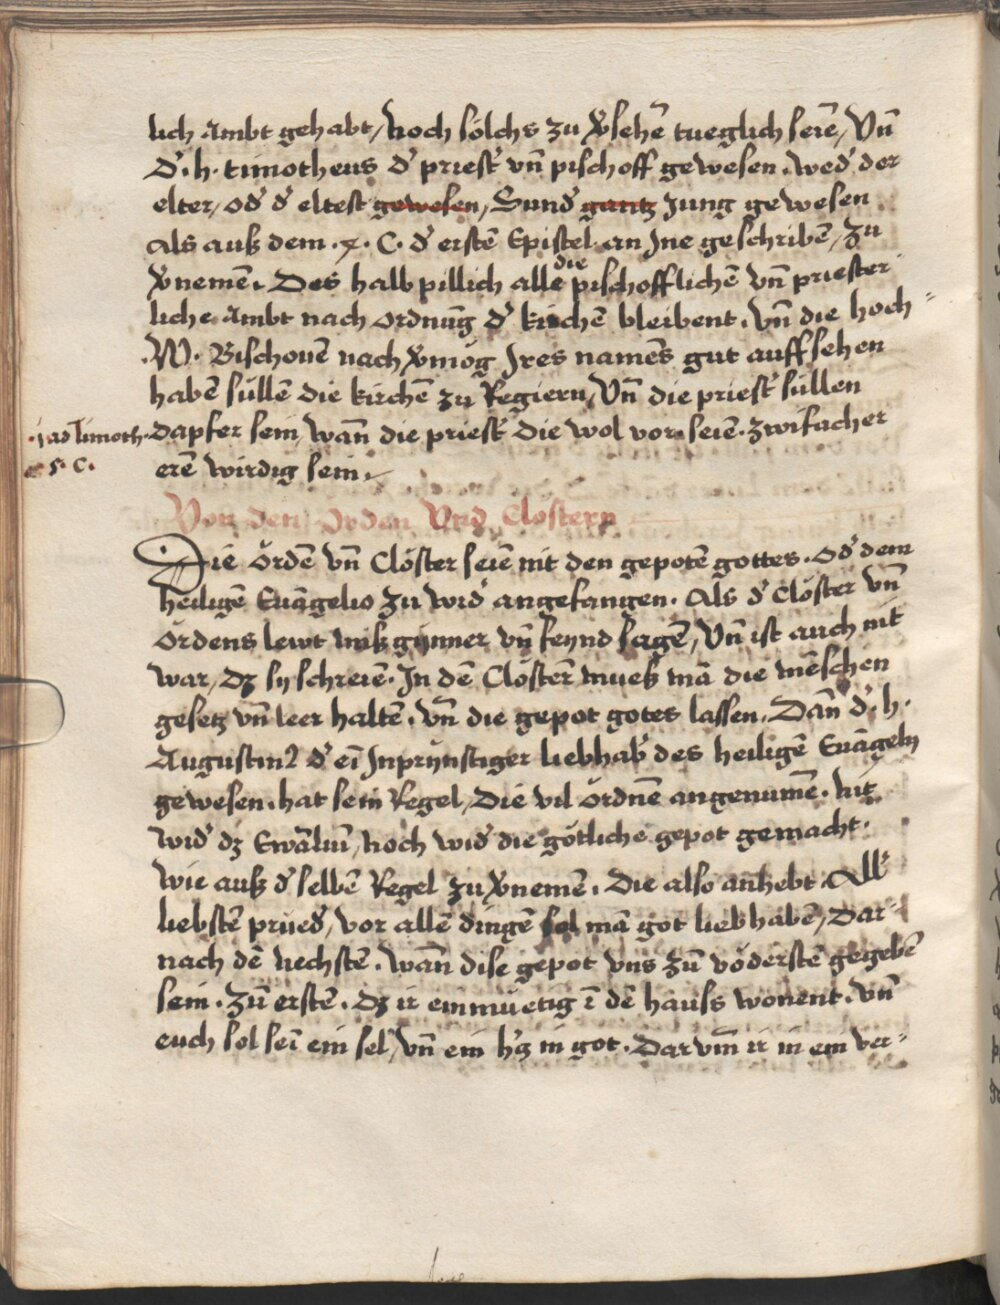 lich Ambt gehabt, noch sölchs zu v̄sehē tueglich seiē, Vn̄
D̄. h. timotheus d̄ priest̄ vn̄ pischoff gewesen. wed̄ der
elter, od̄ d̄ eltest gewesen, Sund̄ gantz Jung gewesen
als auß dem .4. C. d̄ erstē Epistel an Jne geschribē, zu
v̄nemē. Des halb pillich alle die pischofflichē vn̄ priester
liche Ambt nach ordnūg d̄ kirchē bleibent. vn̄ die hoch-
.W. Bischovē nach v̄mög Jres namēs gut auffsehen
habē süllē die kirchē zu Regiern, Vn̄ die priest̄ süllen
.j ad Timoth. dapfer sein, wān die priest̄ die wol vor seiē. zwifacher
5. C. erē wirdig sein.
Von den Orden Vnd Clostern
Die ördē vn̄ Clöster seiē nit den gepotē gottes. od̄ dem
heiligē Euāgelio zu wid̄ angefangen. als d̄ Clöster vn̄
ördens lewt mißgünner vn̄ feynd sagē, Vn̄ ist auch nit
war, dz sy schreiē. Jn dē Clöstern mueß mā die mēschen
gesetz vn̄ leer haltē. vn̄ die gepot gotes lassen. Dān d̄. h.
Augustin9 d̄ eī Jnprünstiger liebhab̄ des heiligē Euāgely
gewesen. hat sein Regel, Die vil ördnē angenumē. nit
wid̄ dz Ewāliū, noch wid̄ die götliche gepot gemacht.
wie auß d̄ selbē Regel zu v̄nemē. Die also anhebt. All̄
liebstē prüed̄, vor allē dingē sol mā got liebhabē, Dar-
nach dē nechstē. wān dise gepot vns zū vöderstē gegebē
sein. zū erstē. Dz ir einmüetig ī dē hauss wonent. vn̄
euch sol seī ein sel, vn̄ ein h̄z in got. Darvm̄ ir in ein ver-